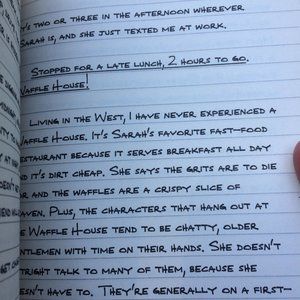 's two or three in the afternoon wherever
Sarah is, and she just texted me at work.
Stopped for a late lunch, 2 hours to go.
Waffle House!
Living in the West, I have never experienced a
Waffle House. It's Sarah's favorite fast-food
restaurant because it serves breakfast all day
and it's dirt cheap. She says the grits are to die
for and the waffles are a crispy slice of
heaven. Plus, the characters that hang out at
the Waffle House tend to be chatty, older
gentlemen with time on their hands. She doesn't
outright talk to many of them, because she
doesn't have to. They're generally on a first-